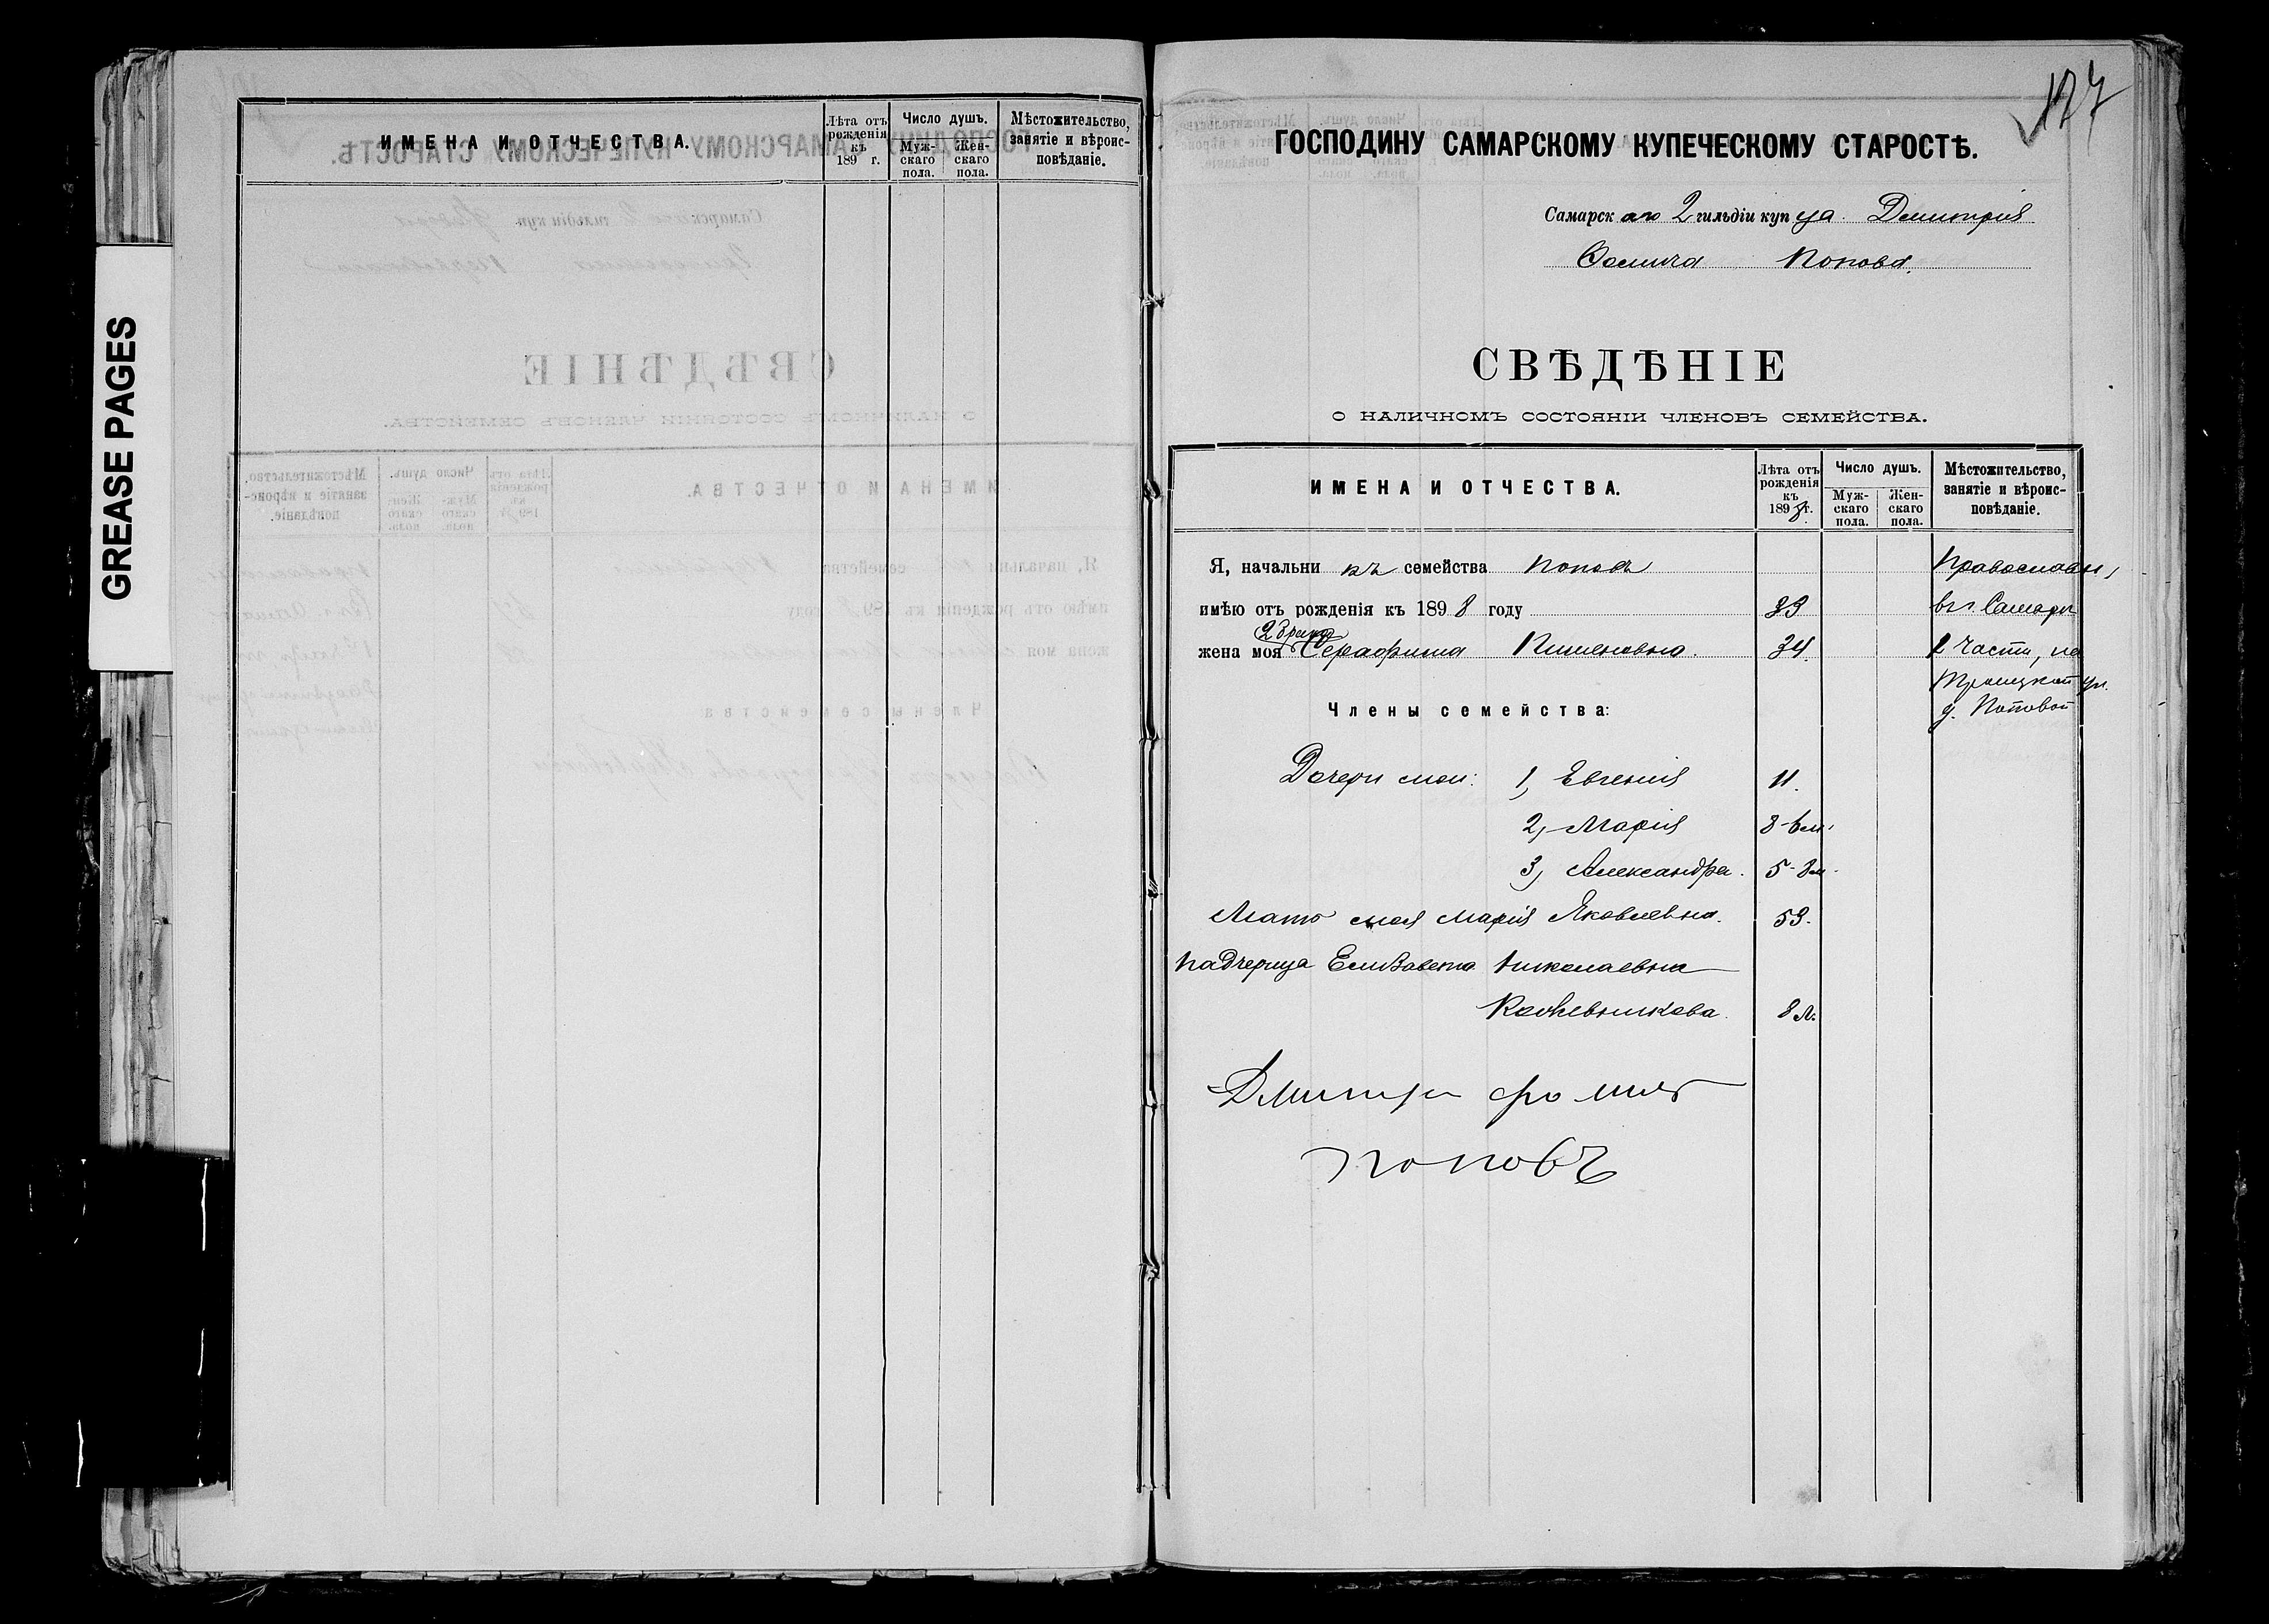 GREASE PAGES
ИМЕНА И ОТЧЕСТВА.
Лѣта отъ рожденія къ 189 г.
Число душъ.
Муж-скаго пола.
Жен-скаго пола.
Мѣстожительство, занятіе и вѣроис-повѣданіе.
127
ГОСПОДИНУ САМАРСКОМУ КУПЕЧЕСКОМУ СТАРОСТѢ.
Самарскаго 2 гильдіи купца Димитрія
Ѳомича Попова.
СВѢДѢНІЕ
О НАЛИЧНОМЪ СОСТОЯНІИ ЧЛЕНОВЪ СЕМЕЙСТВА.
ИМЕНА И ОТЧЕСТВА.
Лѣта отъ рожденія къ 1898 г.
Число душъ.
Муж-скаго пола.
Жен-скаго пола.
Мѣстожительство, занятіе и вѣроис-повѣданіе.
Я, начальникъ семейства Поповъ Православн,
имѣю отъ рожденія къ 1898 году 33 въ г. Самарѣ
2 брака
жена моя Серафима Пименовна. 34. 2 части, на
Троицкой ул.
Члены семейства: д. Поповой
Дочери мои: 1, Евгенія 11.
2, Марія 8-6 м.
3, Александра. 5-8 м.
Мать моя Марія Яковлевна. 53.
Падчерица Елизавета Николаевна
Кожевникова. 8 л.
Дмитри фомич
поповъ